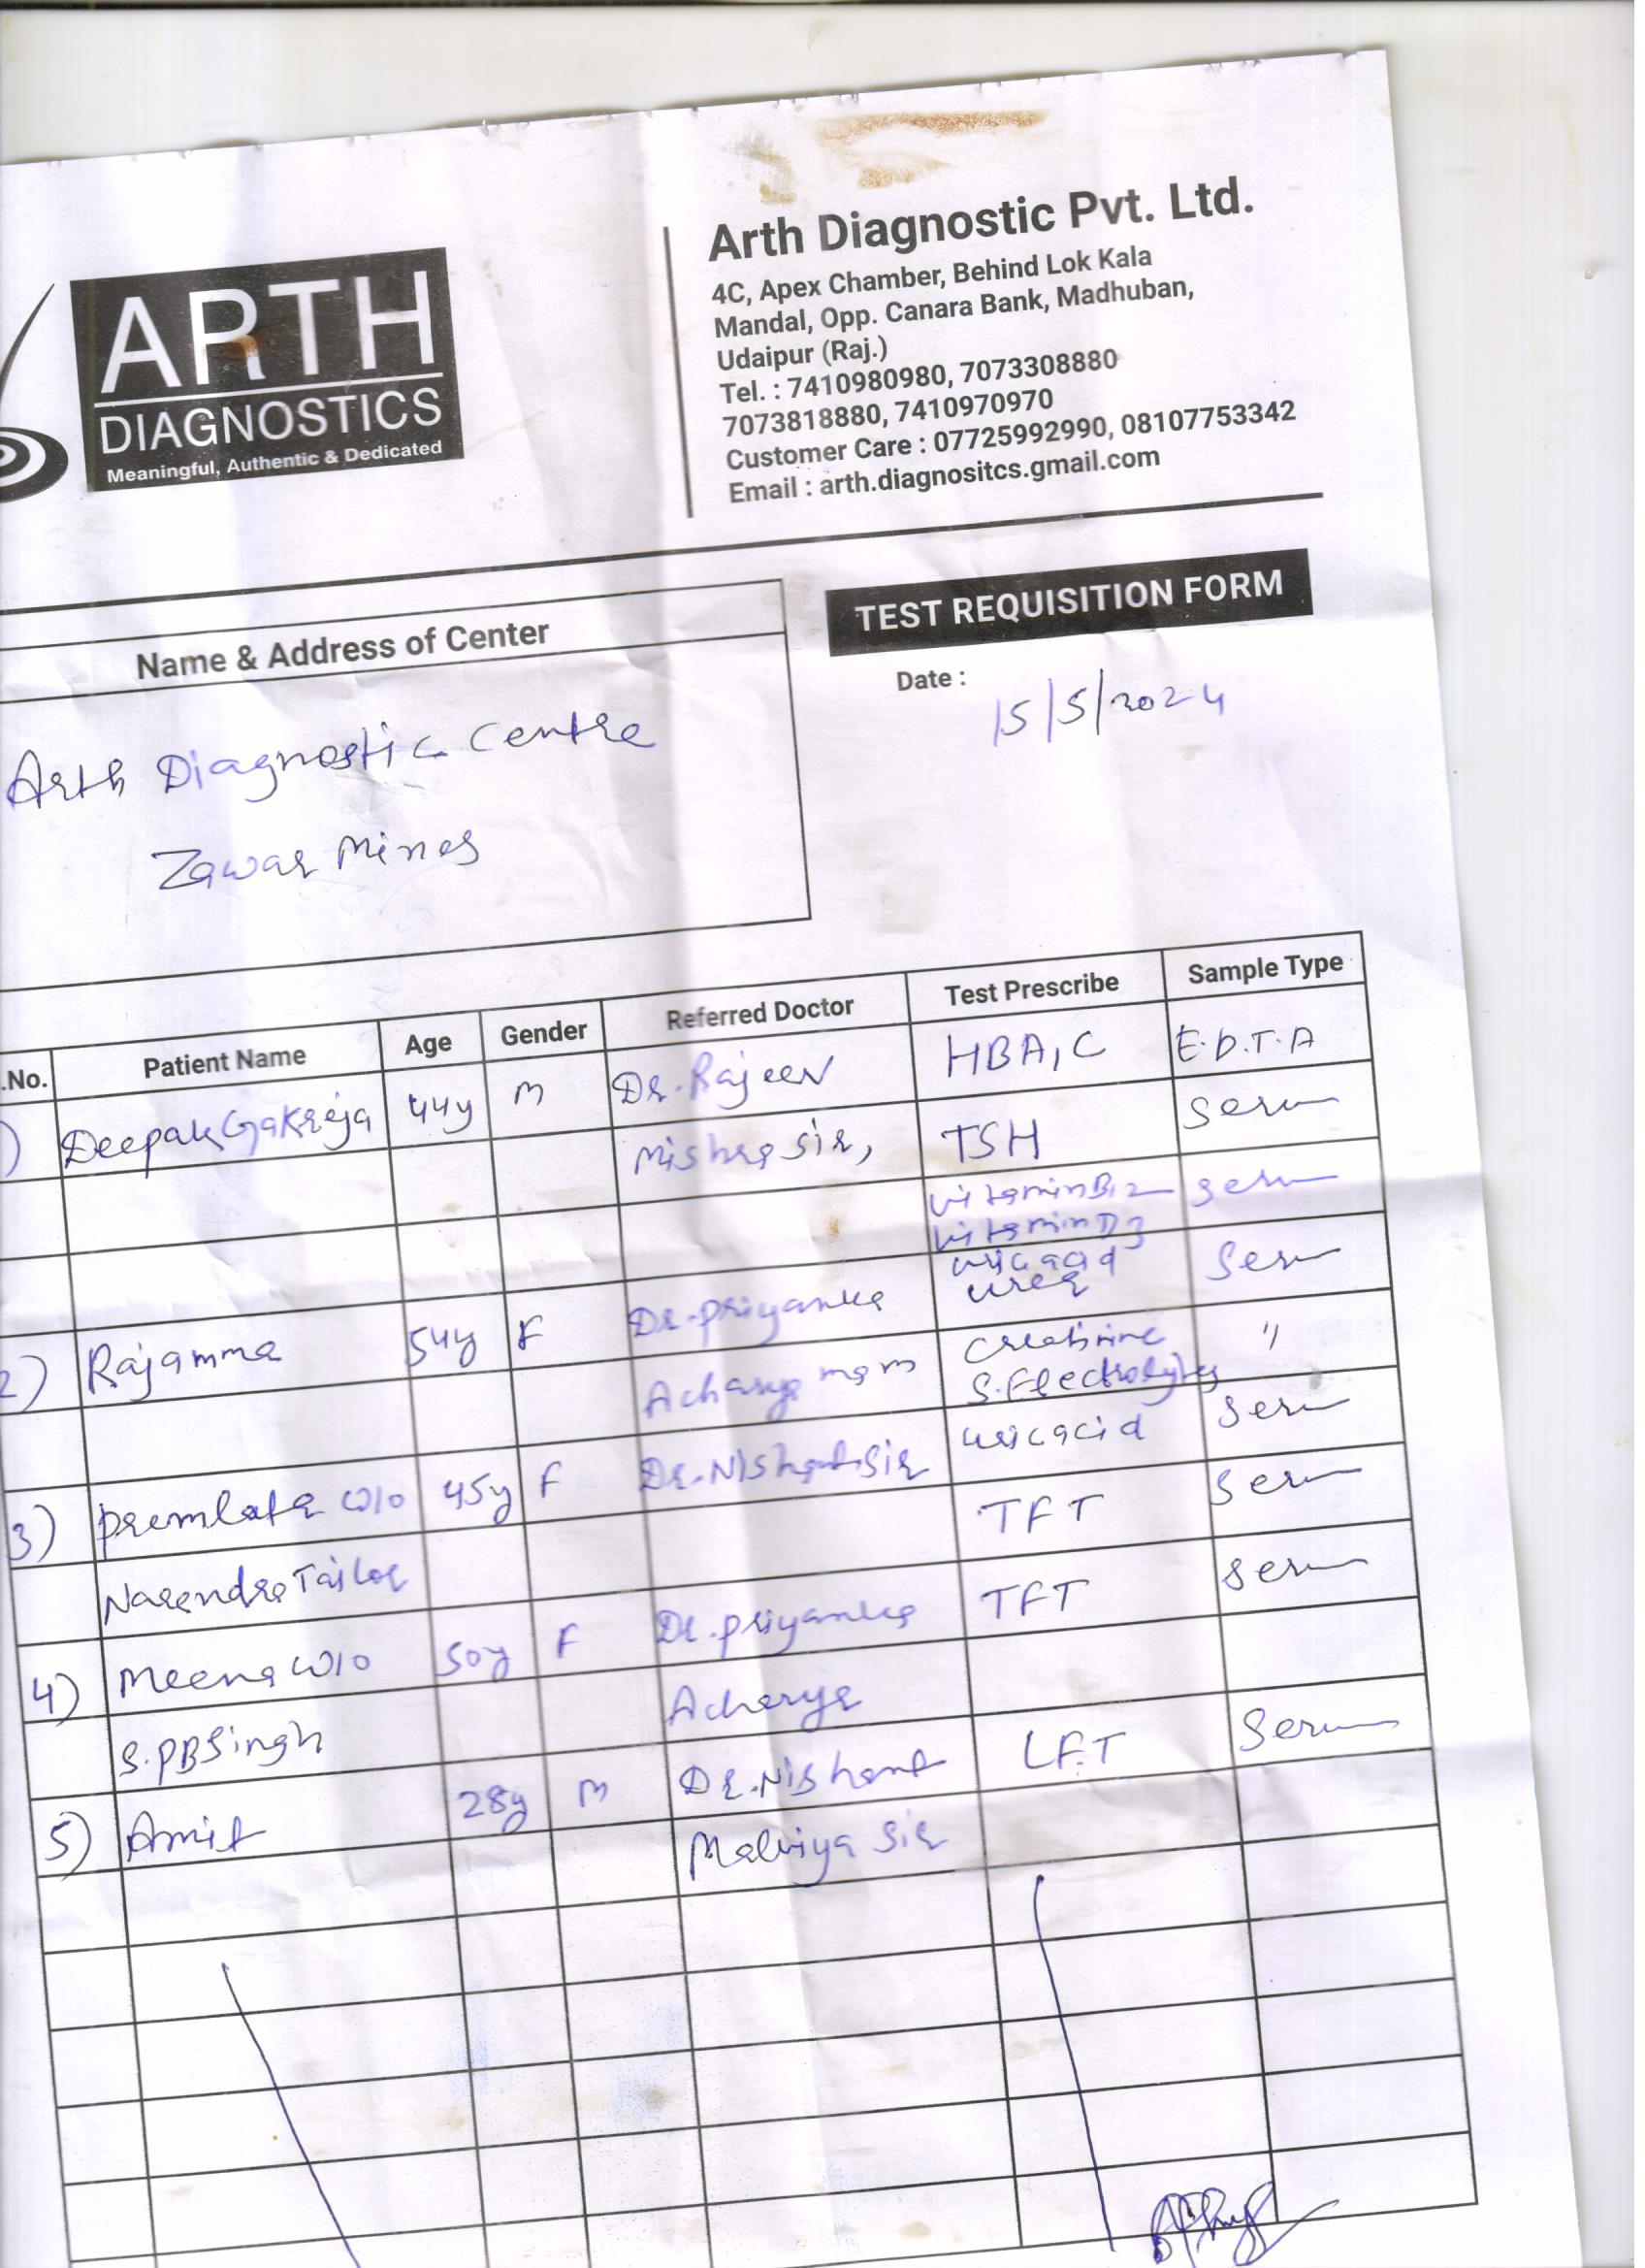 ARTH
DIAGNOSTICS
Meaningful, Authentic & Dedicated
Arth Diagnostic Pvt. Ltd.
4C, Apex Chamber, Behind Lok Kala
Mandal, Opp. Canara Bank, Madhuban,
Udaipur (Raj.)
Tel. : 7410980980, 7073308880
7073818880, 7410970970
Customer Care : 07725992990, 08107753342
Email : arth.diagnositcs.gmail.com
Name & Address of Center
Arth Diagnostic Centre
Zawar Mines
TEST REQUISITION FORM
Date : 15/5/2024
.No. Patient Name Age Gender Referred Doctor Test Prescribe Sample Type
) Deepak Gakreja 44y M Dr. Rajeev HBA1C E.D.T.A
Mishra Sir, TSH Serum
Vitamin B12 Serum
Vitamin D3
uric acid
2) Rajamma 54y F Dr. Priyanka urea Serum
Acharya mam Creatinine "
S. Electrolytes
3) Premlata W/o 45y F Dr. Nishant Sir uric acid Serum
Narendra Tailor TFT Serum
4) Meena W/o 50y F Dr. Priyanka TFT Serum
S.P.B Singh Acharya
5) Amit 28y M Dr. Nishant LFT Serum
Malviya Sir